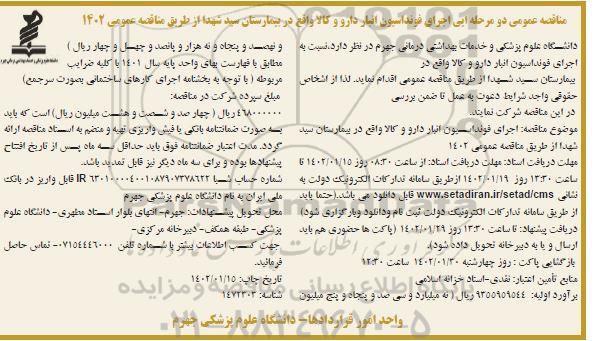 مناقصه عمومی دو مرحله ایی اجرای فونداسیون انبار دارو و کالا واقع در بیمارستان سید شهدا از طریق مناقصه عمومی ۱۴۰۲
دانشگاه علوم پزشکی و خدمات بهداشتی درمانی جهرم در نظر دارد،نسبت به
اجرای فونداسیون انبار دارو و کالا واقع در
بیمارستان سید شهدا از طریق مناقصه عمومی اقدام نماید. لذا از اشخاص
حقوقی واجد شرایط دعوت به عمل تا ضمن بررسی
در این مناقصه شرکت نمایند.
موضوع مناقصه: اجرای فونداسیون انبار دارو و کالا واقع در بیمارستان سید
شهدا از طریق مناقصه عمومی ۱۴۰۲
مهلت دریافت اسناد: مهلت دریافت اسناد: از ساعت ۰۸:۳۰ روز ۱۴۰۲/۰۱/۱۵ تا
ساعت ۱۳:۳۰ روز ۱۴۰۲/۰۱/۱۹ ازطریق سامانه تدارکات الکترونیک دولت به
نشانی www.setadiran.ir/setad/cms قابل دانلود می باشد.(حتما باید
از طریق سامانه تدارکات الکترونیک دولت ثبت نام ودانلود وبارگزاری شود)
دریافت پیشنهاد: تا ساعت ۱۳:۳۰ روز ۱۴۰۲/۰۱/۲۹ (پاکت ها حضوری هم باید
ارسال و یا به دبیرخانه تحویل داده شود).
بازگشایی پاکت : روز چهارشنبه ۱۴۰۲/۰۱/۳۰ ساعت ۱۲:۳۰
منابع تأمین اعتبار: نقدی-اسناد خزانه اسلامی
برآورد اولیه: ۹۳۵۵۹۵۹۵۴۴ ریال ( نه میلیارد و سی صد و پنجاه و پنج میلیون
و نهصد و پنجاه و نه هزار و پانصد و چهل و چهار ریال )
مطابق با فهرست بهای واحد پایه سال ۱۴۰۱ با کلیه ضرایب
مربوطه ( با توجه به بخشنامه اجرای کارهای ساختمانی بصورت سرجمع)
مبلغ سپرده شرکت در مناقصه:
۴۶۸۰۰۰۰۰۰ ریال ( چهار صد و شصت و هشت میلیون ریال) است که باید
به صورت ضمانتنامه بانکی یا فیش واریزی تهیه و منضم به اسناد مناقصه ارائه
گردد. مدت اعتبار ضمانتنامه فوق باید حداقل سه ماه پس از تاریخ افتتاح
پیشنهادها بوده و برای سه ماه دیگر نیز قابل تمدید باشد.
قابل واریز در بانک
ملی ایران به نام دانشگاه علوم پزشکی جهرم
محل تحویل پیشنهادات: جهرم- انتهای بلوار استاد مطهری- دانشگاه علوم
پزشکی- طبقه همکف- دبیرخانه مرکزی-
جهت کسب اطلاعات بیشتر با شماره تلفن ۰۷۱۵۴۴۴۶۰۰۰ تماس حاصل
فرمائید.
تاریخ چاپ: ۱۴۰۲/۰۱/۱۵
شناسه: ۱۴۷۲۳۰۳
واحد امور قراردادها- دانشگاه علوم پزشکی جهرم